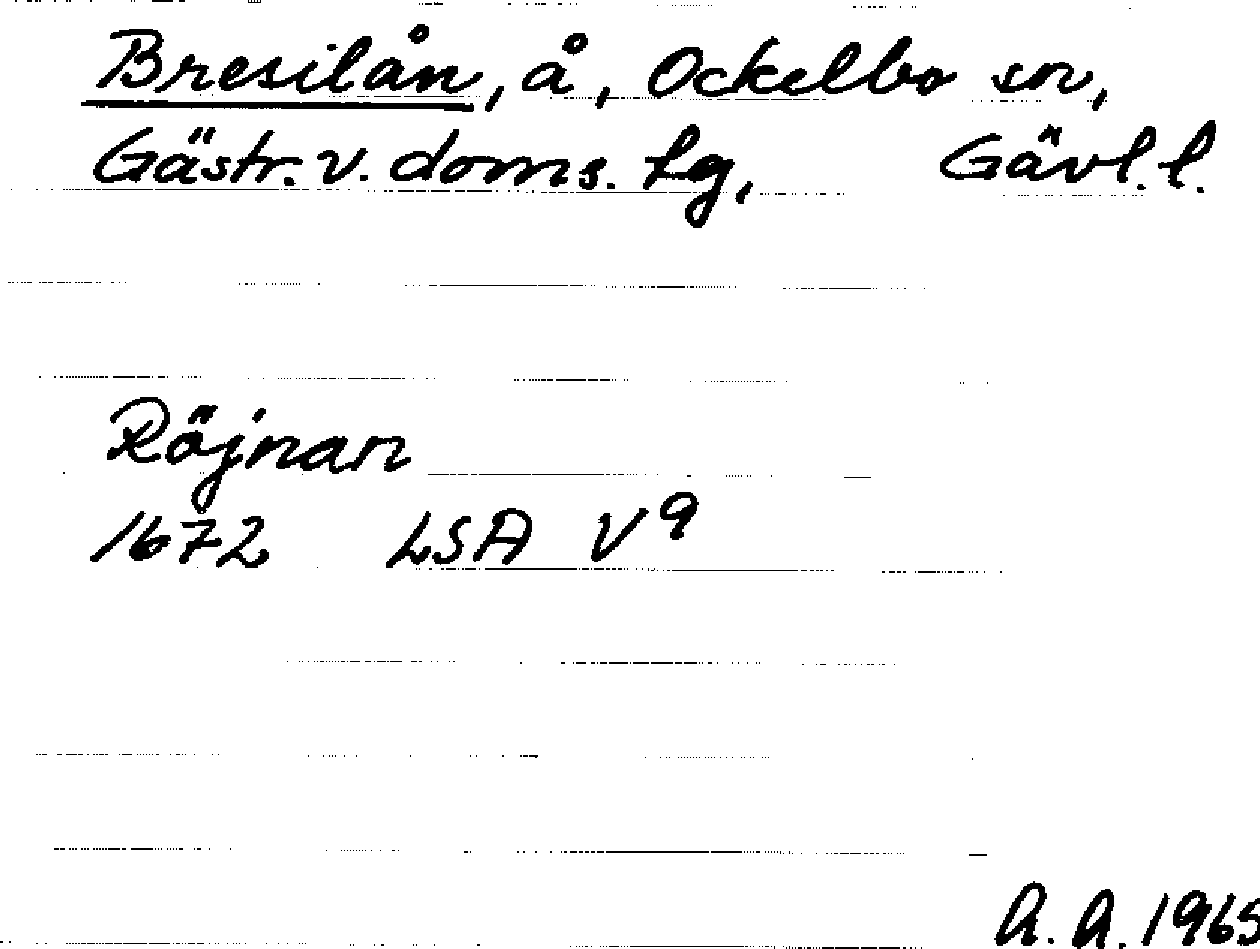 Bresilån, å, Ockelbo sn,
Gästr. v. doms. tg, Gävl. l.
Röjnan
1672 LSA V9
A. A. 1965